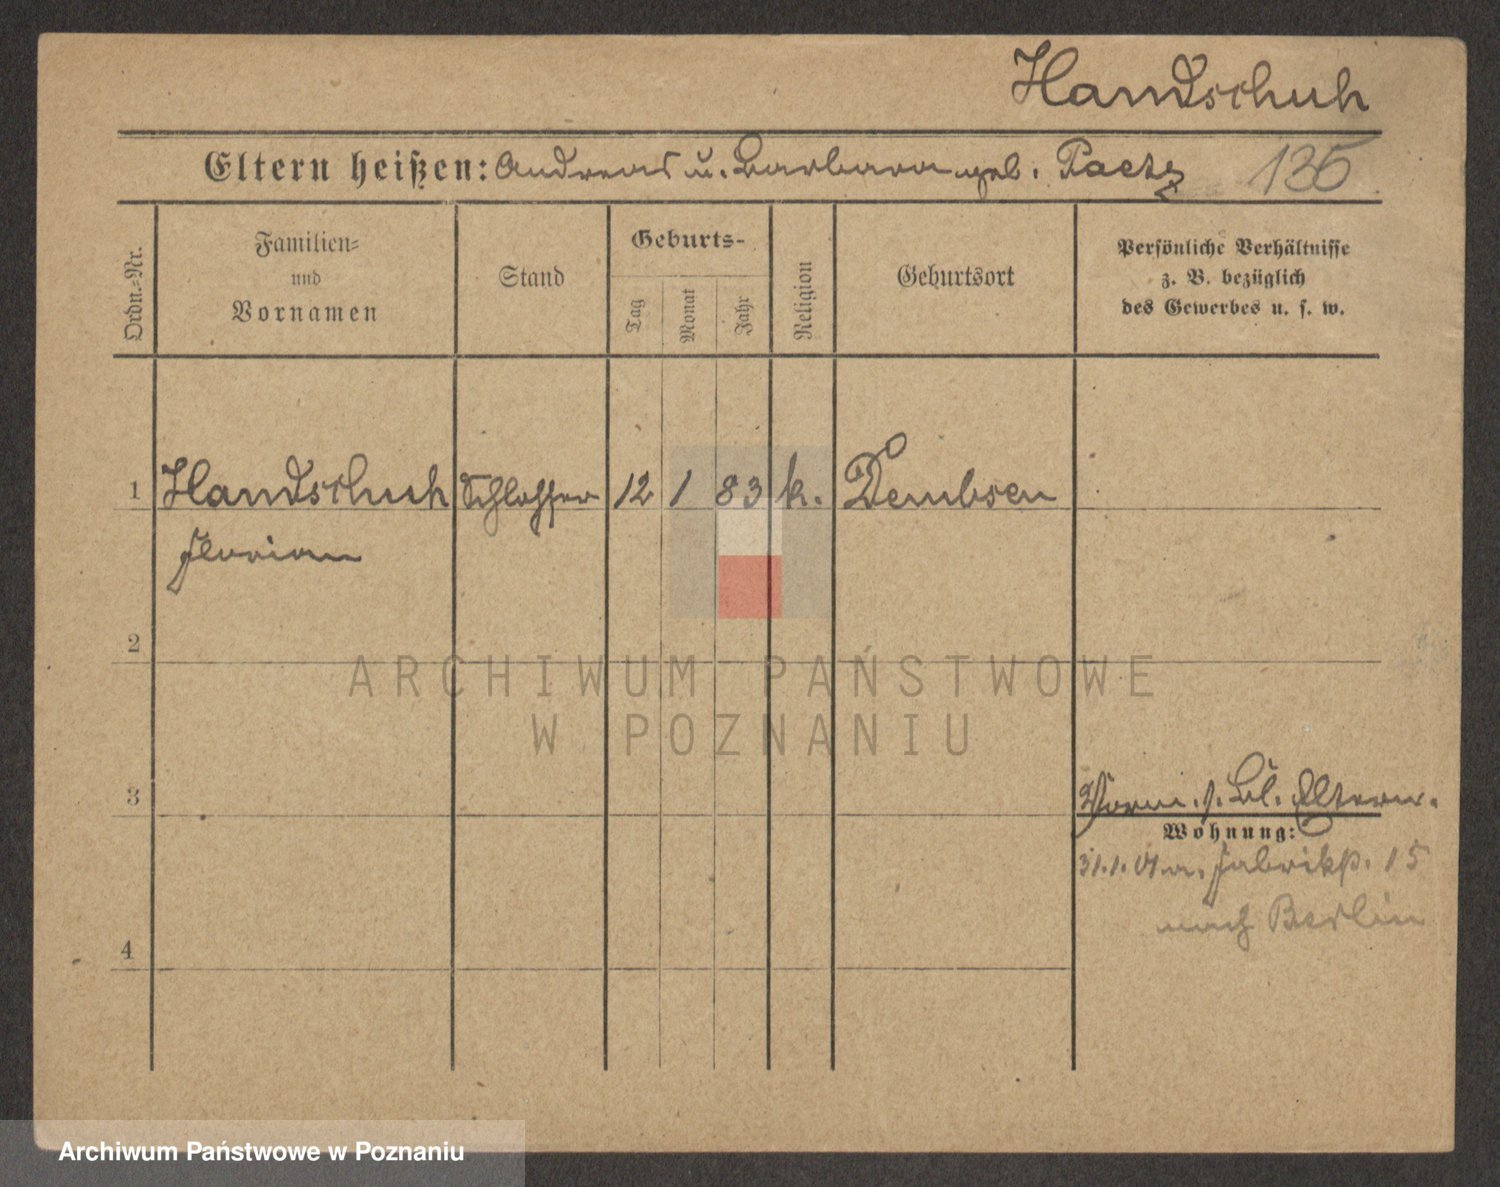 Handschuh
Eltern heißen: Andreas u. Barbara geb. Paetz 135
Ordn.-Nr.
Familien-
und
Vornamen
Stand
Geburts-
Tag
Monat
Jahr
Religion
Geburtsort
Persönliche Verhältnisse
z. B. bezüglich
des Gewerbes u. s. w.
1 Handschuh Schlosser 12 1 83 k. Dembsen
Florian
2
ARCHIWUM PAŃSTWOWE
W POZNANIU
3
Vorm. s. Bl. Eltern.
Wohnung:
31.1.01 a. Fabrikp. 15
nach Berlin
4
Archiwum Państwowe w Poznaniu